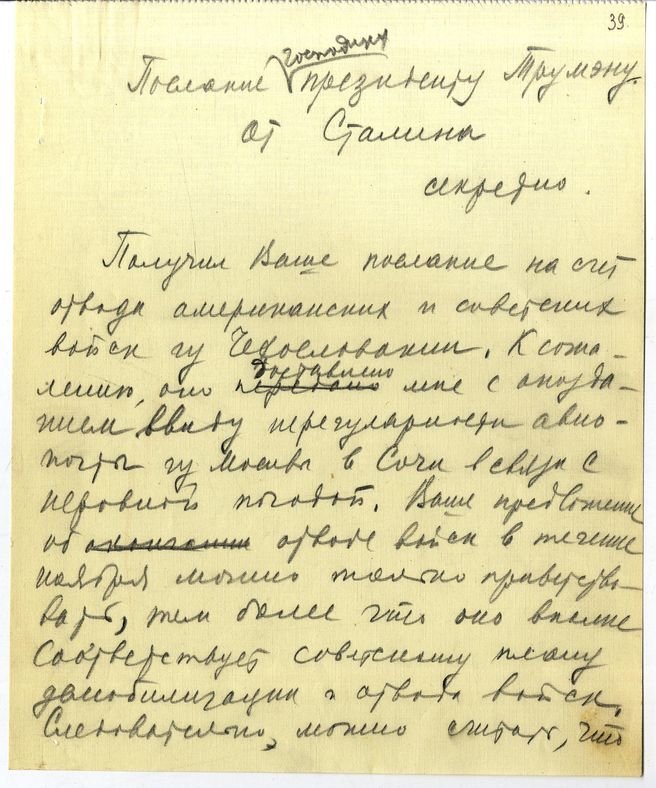 39
господину
Послание президенту Трумэну
от Сталина
секретно.
Получил Ваше послание на счет
отвода американских и советских
войск из Чехословакии. К сожа-
доставлено
лению, оно передано мне с опозда-
нием ввиду нерегулярности авио-
почты из Москвы в Сочи в связи с
неровной погодой. Ваше предложение
об отводе войск в течение
ноября можно только приветство-
вать, тем более что оно вполне
соответствует советскому плану
демобилизации и отвода войск.
Следовательно, можно считать, что